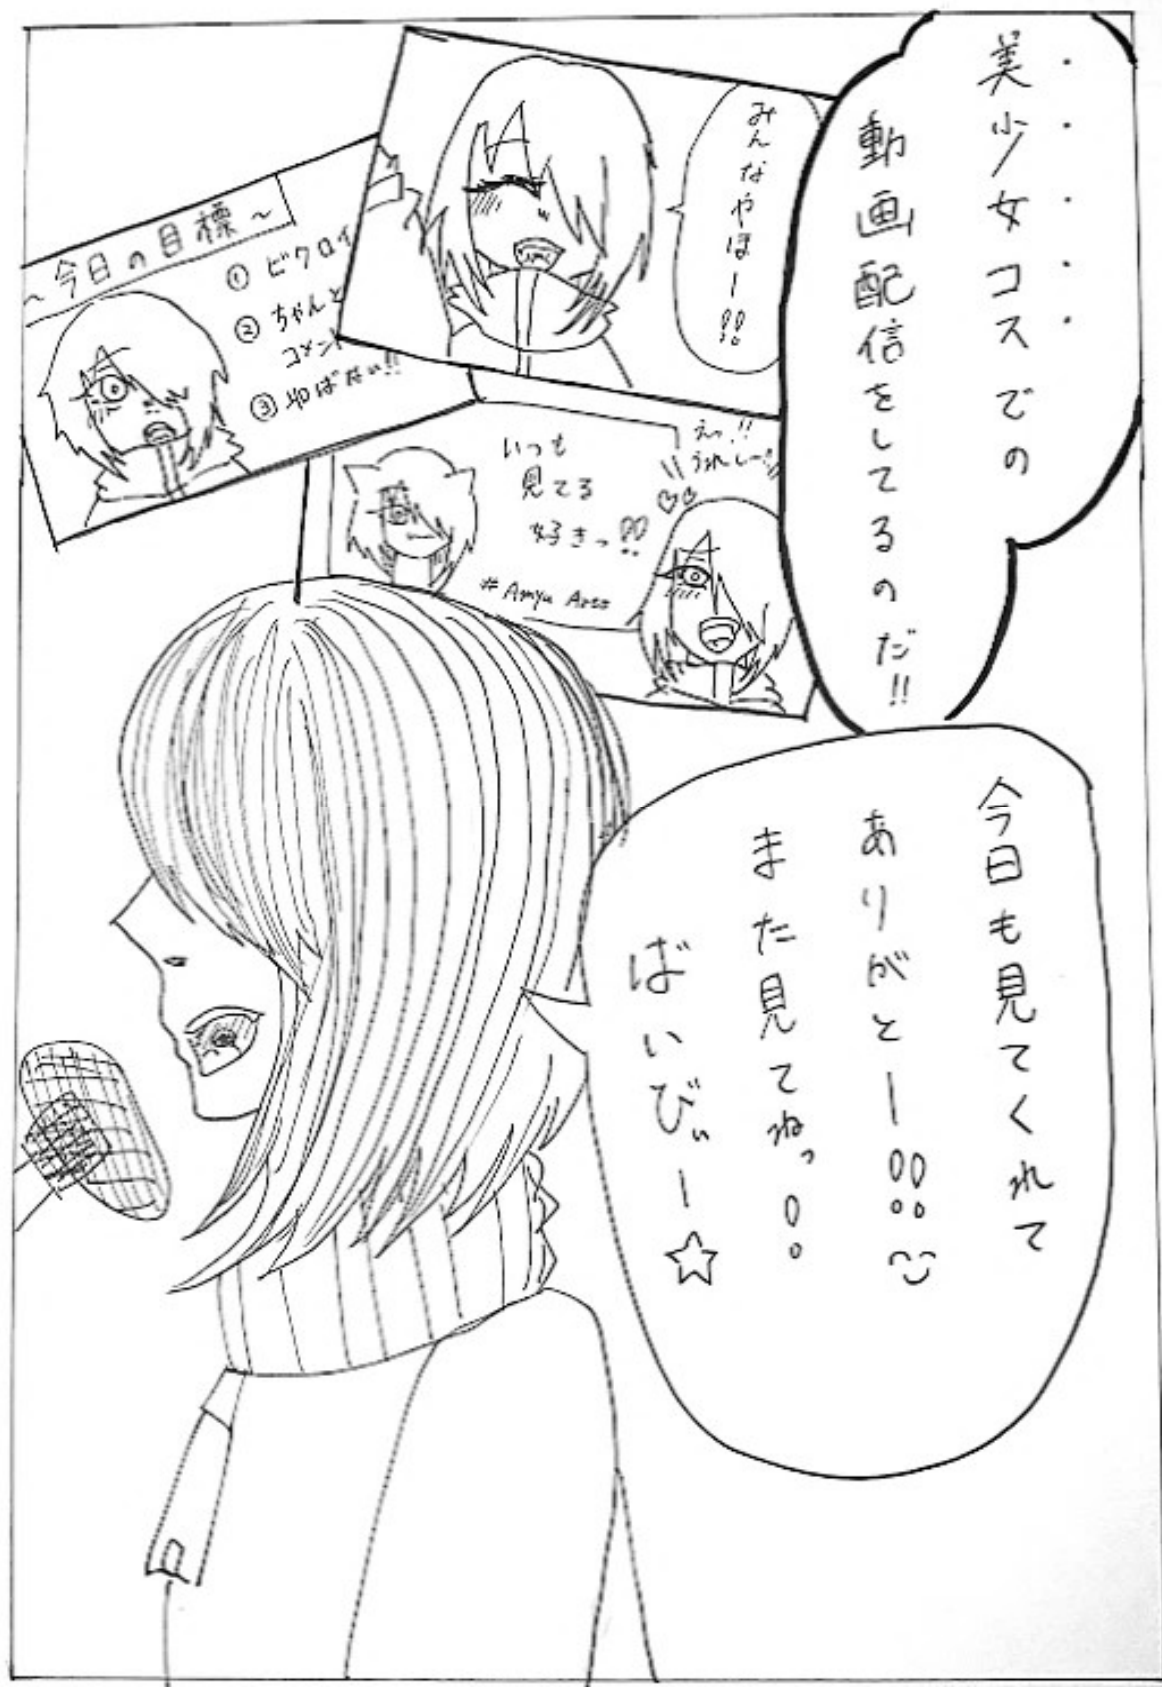 美少女コスでの
動画配信をしてるのだ!!
みんなやほー!!
~今日の目標~
① ビクロイ
② ちゃんと
コメント
③ 和ばない!!
いつも
見てる
好きっ!!
# Amyu
えっ!!
うれしー!!
今日も見てくれて
ありがとー!!
また見てねっ!
ばいびぃー☆